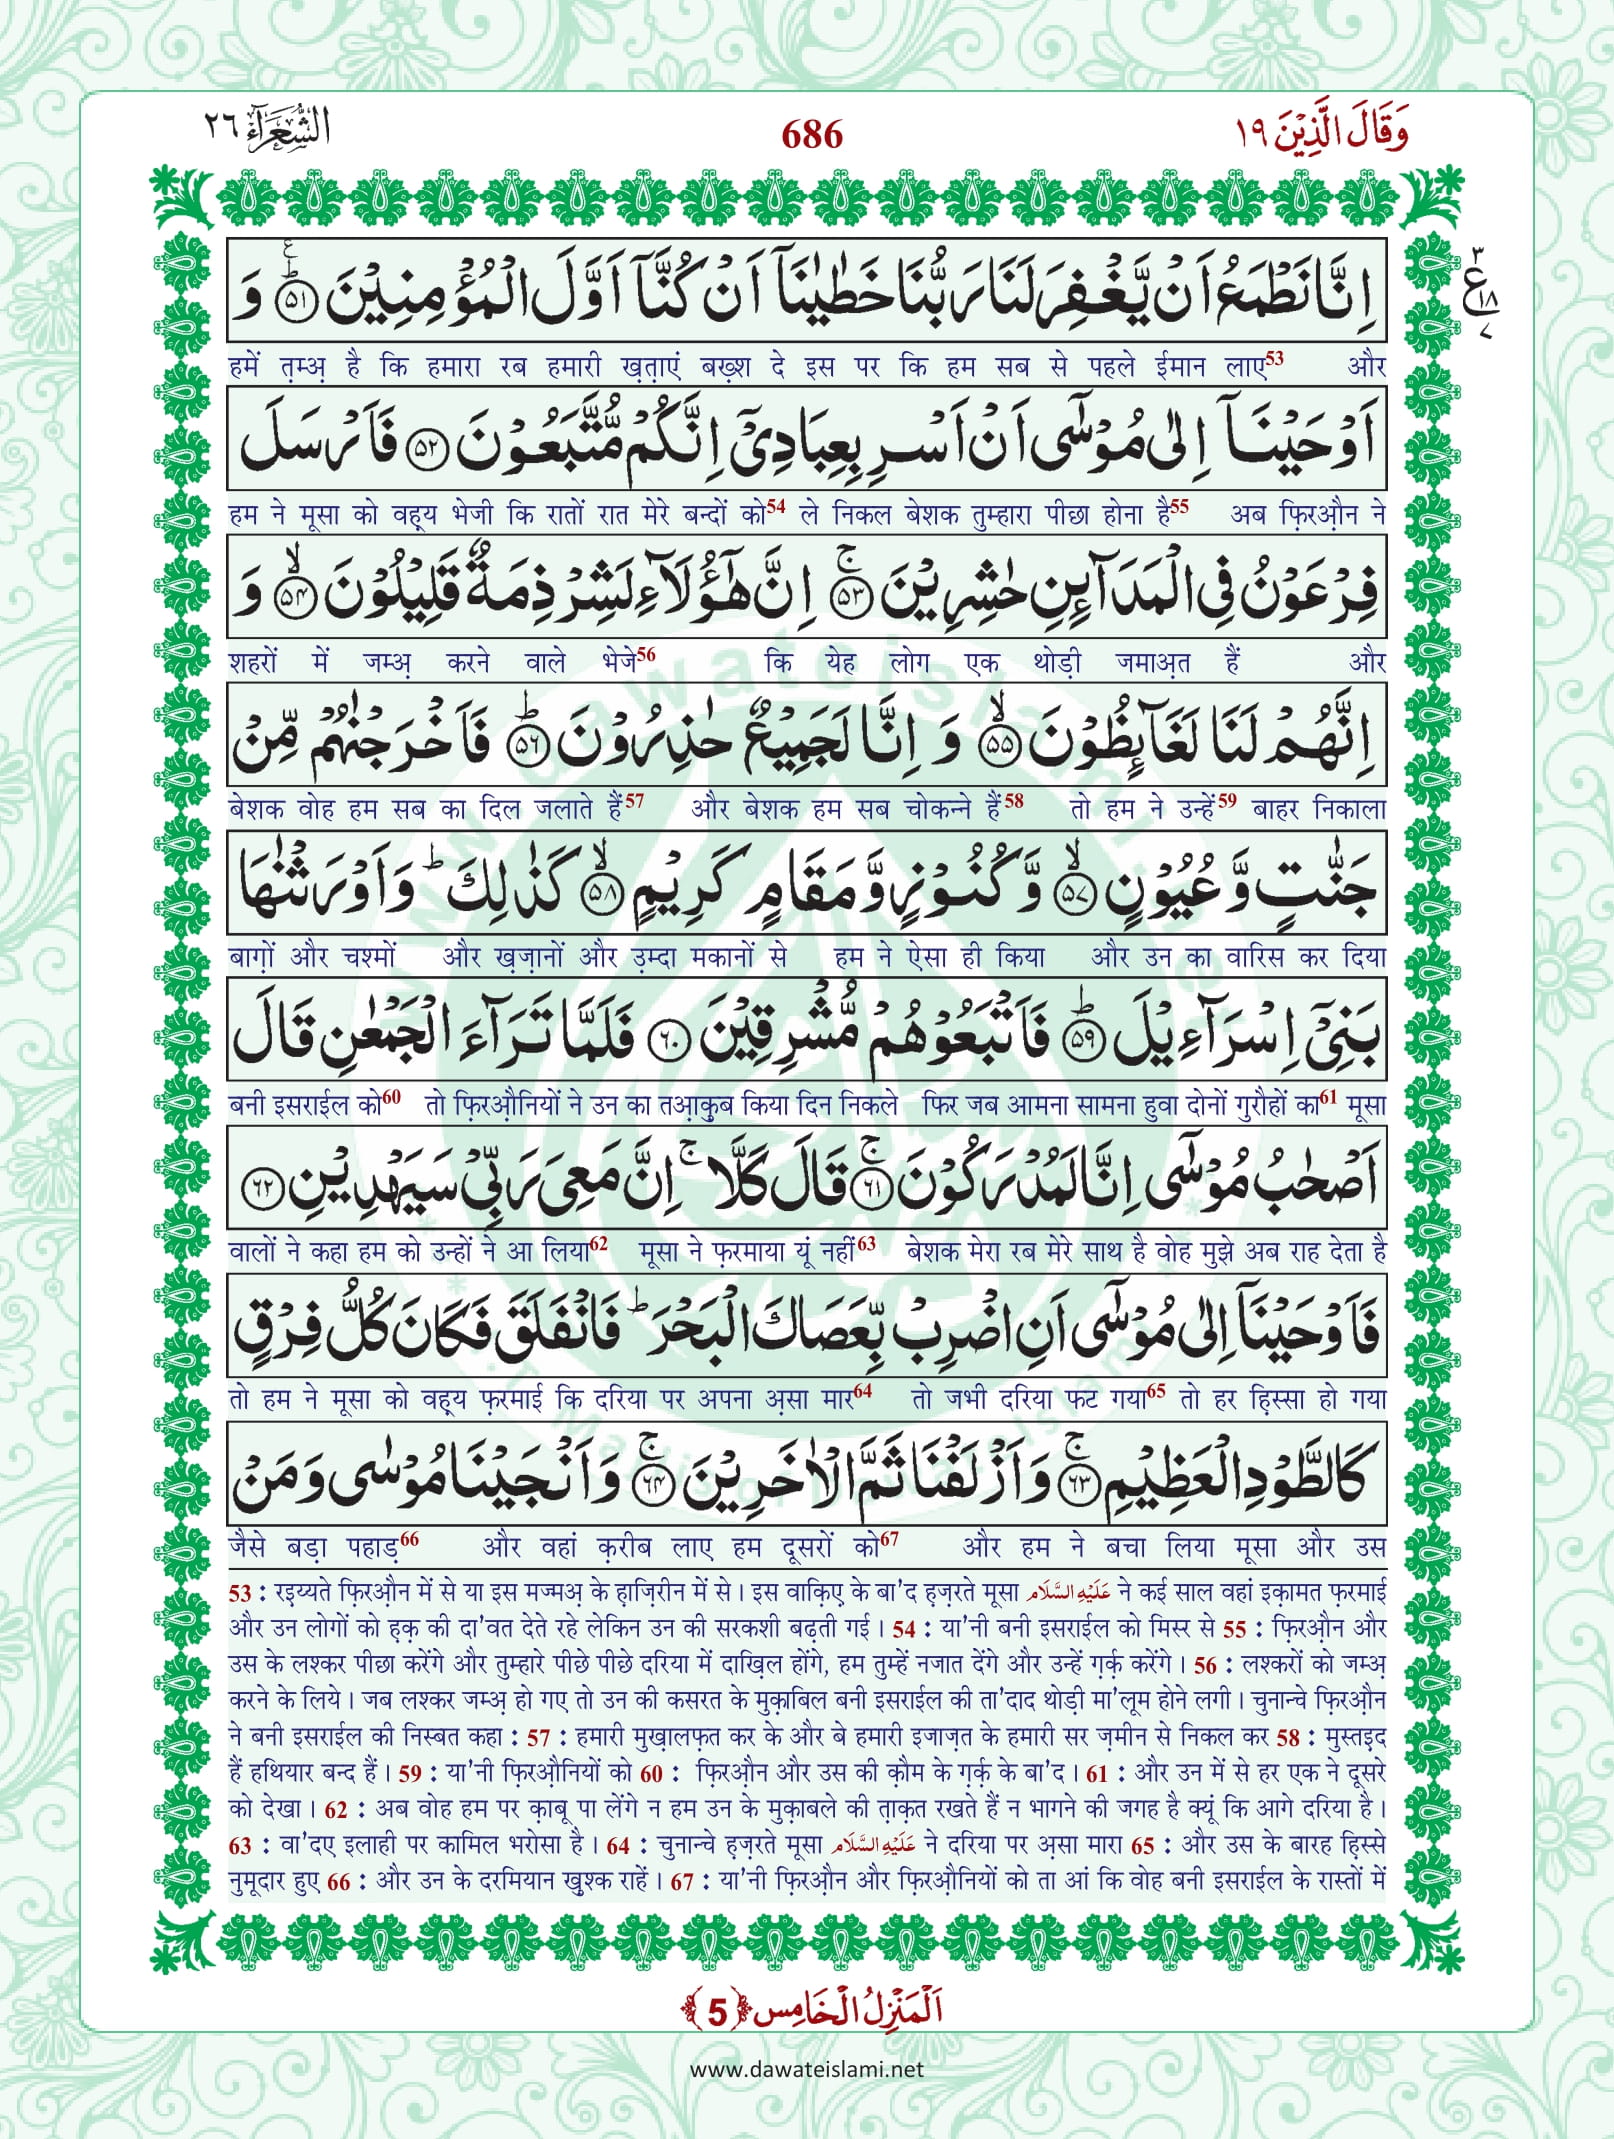 وَقَالَ الَّذِیْنَ ١٩
686
الشُّعَرَآء ٢٦
اِنَّا نَطْمَعُ اَنْ یَّغْفِرَ لَنَا رَبُّنَا خَطٰیٰنَاۤ اَنْ كُنَّاۤ اَوَّلَ الْمُؤْمِنِیْنَؕ ﴿۵۱﴾ وَ
٣
ع
١٨
٧
हमें त़म्अ़ है कि हमारा रब हमारी ख़त़ाएं बख़्श दे इस पर कि हम सब से पहले ईमान लाए53 और
اَوْحَیْنَاۤ اِلٰى مُوْسٰۤى اَنْ اَسْرِ بِعِبَادِیْۤ اِنَّكُمْ مُّتَّبَعُوْنَ ﴿۵۲﴾ فَاَرْسَلَ
हम ने मूसा को वह़्य भेजी कि रातों रात मेरे बन्दों को54 ले निकल बेशक तुम्हारा पीछा होना है55 अब फ़िरऔ़न ने
فِرْعَوْنُ فِی الْمَدَآئِنِ حٰشِرِیْنَۚ ﴿۵۳﴾ اِنَّ هٰۤؤُلَآءِ لَشِرْذِمَةٌ قَلِیْلُوْنَۙ ﴿۵۴﴾ وَ
शहरों में जम्अ़ करने वाले भेजे56 कि येह लोग एक थोड़ी जमाअ़त हैं और
اِنَّهُمْ لَنَا لَغَآئِظُوْنَۙ ﴿۵۵﴾ وَ اِنَّا لَجَمِیْعٌ حٰذِرُوْنَؕ ﴿۵۶﴾ فَاَخْرَجْنٰهُمْ مِّنْ
बेशक वोह हम सब का दिल जलाते हैं57 और बेशक हम सब चोकन्ने हैं58 तो हम ने उन्हें59 बाहर निकाला
جَنّٰتٍ وَّ عُیُوْنٍۙ ﴿۵۷﴾ وَّ كُنُوْزٍ وَّ مَقَامٍ كَرِیْمٍۙ ﴿۵۸﴾ كَذٰلِكَؕ وَ اَوْرَثْنٰهَا
बाग़ों और चश्मों और ख़ज़ानों और उ़म्दा मकानों से हम ने ऐसा ही किया और उन का वारिस कर दिया
بَنِیْۤ اِسْرَآءِیْلَؕ ﴿۵۹﴾ فَاَتْبَعُوْهُمْ مُّشْرِقِیْنَ ﴿۶۰﴾ فَلَمَّا تَرَآءَ الْجَمْعٰنِ قَالَ
बनी इसराईल को60 तो फ़िरऔ़नियों ने उन का तआ़क़ुब किया दिन निकले फिर जब आमना सामना हुवा दोनों गुरौहों का61 मूसा
اَصْحٰبُ مُوْسٰۤى اِنَّا لَمُدْرَكُوْنَۚ ﴿۶۱﴾ قَالَ كَلَّاۚ اِنَّ مَعِیَ رَبِّیْ سَیَهْدِیْنِ ﴿۶۲﴾
वालों ने कहा हम को उन्हों ने आ लिया62 मूसा ने फ़रमाया यूं नहीं63 बेशक मेरा रब मेरे साथ है वोह मुझे अब राह देता है
فَاَوْحَیْنَاۤ اِلٰى مُوْسٰۤى اَنِ اضْرِبْ بِّعَصَاكَ الْبَحْرَؕ فَانْفَلَقَ فَكَانَ كُلُّ فِرْقٍ
तो हम ने मूसा को वह़्य फ़रमाई कि दरिया पर अपना अ़सा मार64 तो जभी दरिया फट गया65 तो हर हि़स्सा हो गया
كَالطَّوْدِ الْعَظِیْمِۚ ﴿۶۳﴾ وَ اَزْلَفْنَا ثَمَّ الْاٰخَرِیْنَۚ ﴿۶۴﴾ وَ اَنْجَیْنَا مُوْسٰى وَ مَنْ
जैसे बड़ा पहाड़66 और वहां क़रीब लाए हम दूसरों को67 और हम ने बचा लिया मूसा और उस
53 : रइय्यते फ़िरऔ़न में से या इस मज्मअ़ के ह़ाज़िरीन में से। इस वाक़िए़ के बा'द ह़ज़रते मूसा عَلَيْهِ السَّلَام ने कई साल वहां इक़ामत फ़रमाई
और उन लोगों को ह़क़ की दा'वत देते रहे लेकिन उन की सरकशी बढ़ती गई। 54 : या'नी बनी इसराईल को मिस्र से 55 : फ़िरऔ़न और
उस के लश्कर पीछा करेंगे और तुम्हारे पीछे पीछे दरिया में दाख़िल होंगे, हम तुम्हें नजात देंगे और उन्हें ग़र्क़ करेंगे। 56 : लश्करों को जम्अ़
करने के लिये। जब लश्कर जम्अ़ हो गए तो उन की कसरत के मुक़ाबिल बनी इसराईल की ता'दाद थोड़ी मा'लूम होने लगी। चुनान्चे फ़िरऔ़न
ने बनी इसराईल की निस्बत कहा : 57 : हमारी मुख़ालफ़त कर के और बे हमारी इजाज़त के हमारी सर ज़मीन से निकल कर 58 : मुस्तइ़द
हैं हथियार बन्द हैं। 59 : या'नी फ़िरऔ़नियों को 60 : फ़िरऔ़न और उस की क़ौम के ग़र्क़ के बा'द। 61 : और उन में से हर एक ने दूसरे
को देखा। 62 : अब वोह हम पर क़ाबू पा लेंगे न हम उन के मुक़ाबले की त़ाक़त रखते हैं न भागने की जगह है क्यूं कि आगे दरिया है।
63 : वा'दए इलाही पर कामिल भरोसा है। 64 : चुनान्चे ह़ज़रते मूसा عَلَيْهِ السَّلَام ने दरिया पर अ़सा मारा 65 : और उस के बारह हि़स्से
नुमूदार हुए 66 : और उन के दरमियान ख़ुश्क राहें। 67 : या'नी फ़िरऔ़न और फ़िरऔ़नियों को ता आं कि वोह बनी इसराईल के रास्तों में
اَلْمَنْزِلُ الْخَامِس ﴿5﴾
www.dawateislami.net